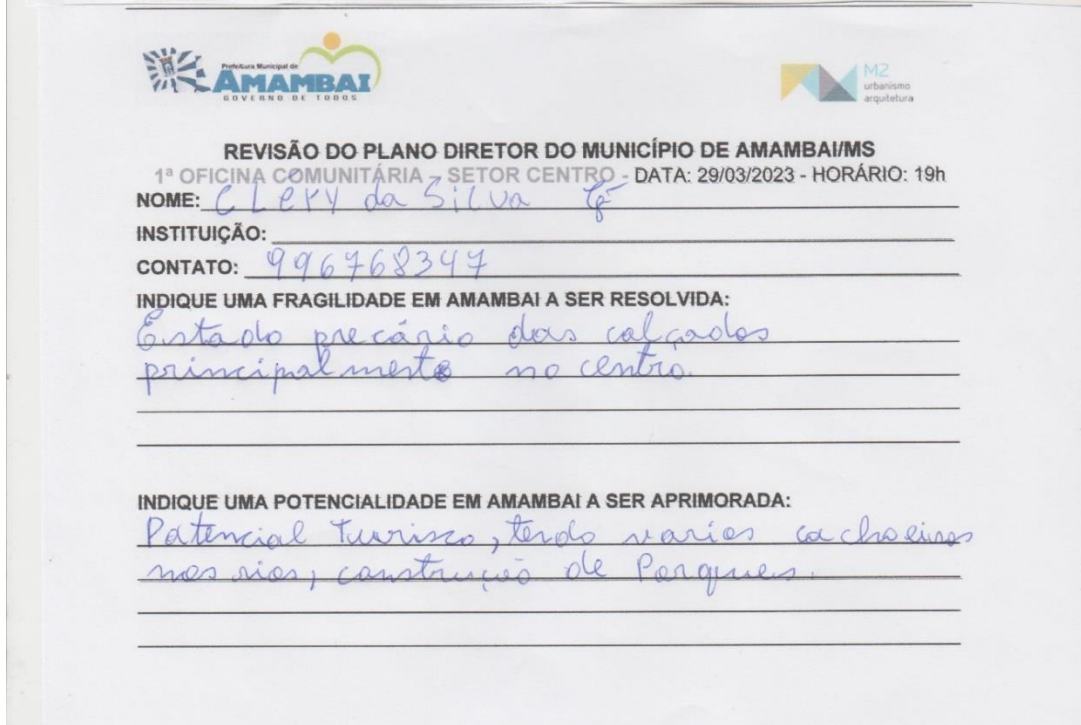 Prefeitura Municipal de
AMAMBAI
GOVERNO DE TODOS
M2
urbanismo
arquitetura
REVISÃO DO PLANO DIRETOR DO MUNICÍPIO DE AMAMBAI/MS
1ª OFICINA COMUNITÁRIA – SETOR CENTRO - DATA: 29/03/2023 - HORÁRIO: 19h
NOME: CLERY da SiLVa
INSTITUIÇÃO:
CONTATO: 996768347
INDIQUE UMA FRAGILIDADE EM AMAMBAI A SER RESOLVIDA:
Estado precário das calçadas
principalmente no centro.
INDIQUE UMA POTENCIALIDADE EM AMAMBAI A SER APRIMORADA:
Potencial Turisco, tendo varias cachoeiras
nos rios, construção de Parques.